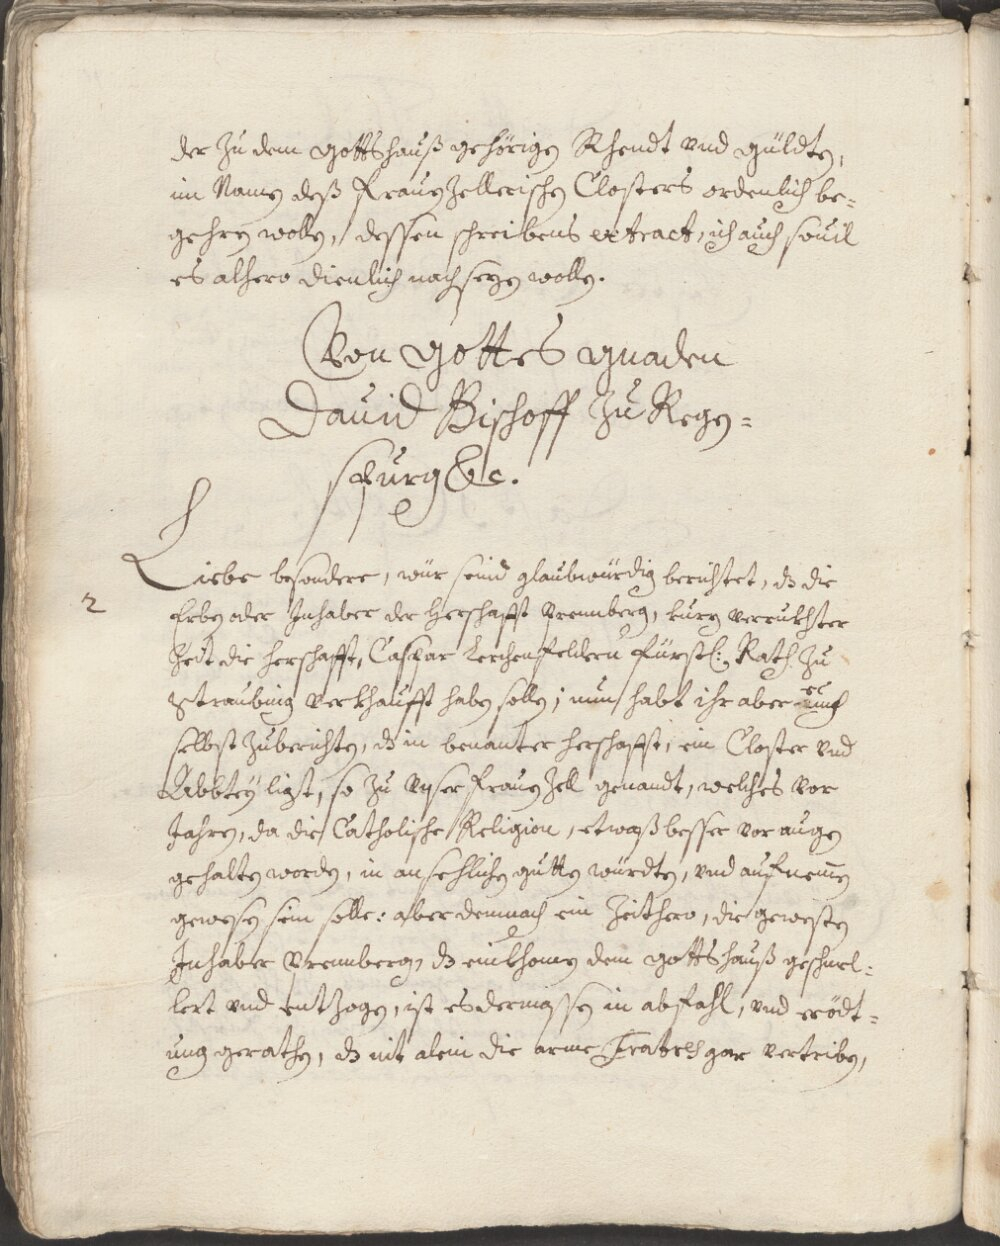 der Zu dem Gottshauß gehörigen Rhendt vnd güldten,
im Namen deß Frauenzellerischen Closters ordenlich be=
gehren wollen, dessen schreibens extract, ich auch souil
es alhero dienlich nach sezen wollen.
Von Gottes gnaden
Dauid Bischoff Zu Regen=
spurg &c.
Liebe besondere, wür seind glaubwürdig berichtet, dz die
2
Erben oder Inhaber der Herschafft Prennberg, kurz verrukhter
Zeit die herschafft, Caspar Lerchenfeldern Fürstl: Rath Zu
Straubing verkhaufft haben sollen; nun habt ihr aber euch
selbst Zuberichten, dz in benanter herschafft, ein Closter vnd
Abbtey ligt, so Zu vnser Frauen Zell genandt, welches vor
Jahren, da die Catholische Religion, etwaß besser vor augen
gehalten worden, in ansehlichen gutten würdten, vnd aufnemen
gewesen sein solle: aber demnach ein Zeithero, die gewesten
Inhaber Prennberg, dz einkhomen dem Gottshauß geschmel=
lert vnd entzogen, ist es dermassen in abfahl, vnd erödt=
ung gerathen, dz nit alein die arme Fratres gar vertriben,